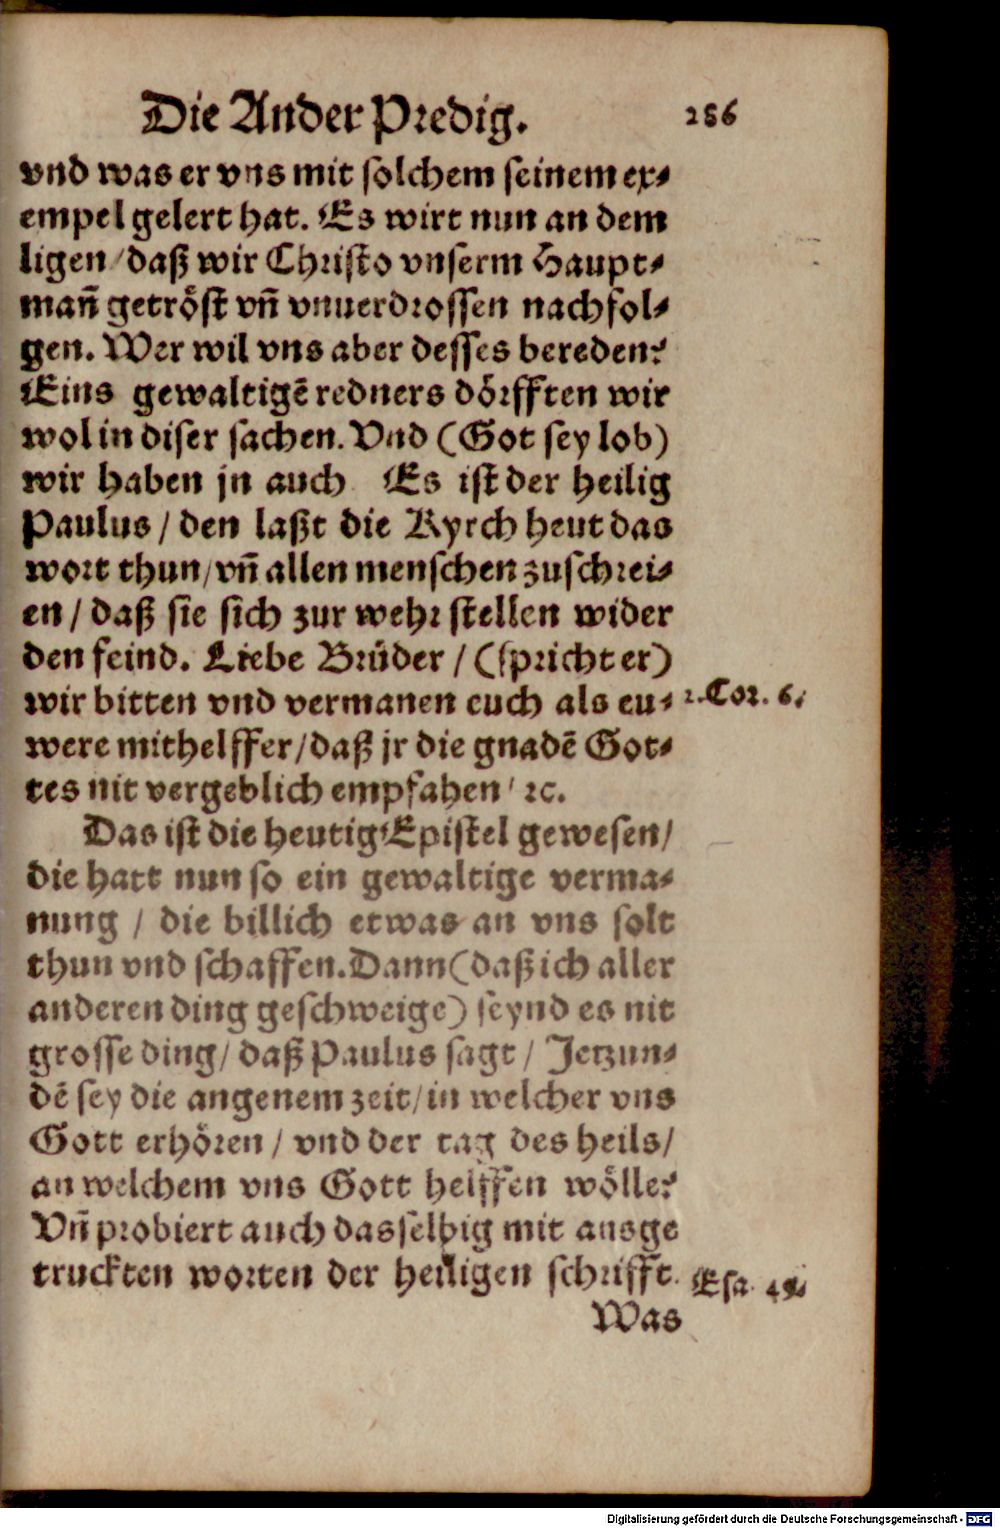 Die Ander Predig. 286
vnd was er vns mit solchem seinem ex⸗
empel gelert hat. Es wirt nun an dem
ligen / daß wir Christo vnserm Haupt⸗
mañ getröst vñ vnuerdrossen nachfol⸗
gen. Wer wil vns aber desses bereden?
Eins gewaltigē redners dörfften wir
wol in diser sachen. Vnd (Got sey lob)
wir haben jn auch Es ist der heilig
Paulus / den laßt die Kyrch heut das
wort thun / vñ allen menschen zuschrei⸗
en / daß sie sich zur wehr stellen wider
den feind. Liebe Brüder / (spricht er)
wir bitten vnd vermanen euch als eu⸗ 2. Cor. 6.
were mithelffer / daß jr die gnadē Got⸗
tes nit vergeblich empfahen / ꝛc.
Das ist die heutig Epistel gewesen /
die hatt nun so ein gewaltige verma⸗
nung / die billich etwas an vns solt
thun vnd schaffen. Dann (daß ich aller
anderen ding geschweige) seynd es nit
grosse ding / daß Paulus sagt / Jetzun⸗
dē sey die angenem zeit / in welcher vns
Gott erhören / vnd der tag des heils /
an welchem vns Gott helffen wölle?
Vñ probiert auch dasselbig mit ausge
truckten worten der heiligen schrifft. Esa. 49.
Was
Digitalisierung gefördert durch die Deutsche Forschungsgemeinschaft - DFG